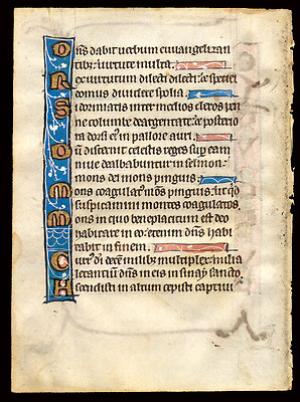 Dn̄s dabit uerbum euuangelizan
tib; uirtute multa.
Rex uirtutum dilecti dilecti: ⁊ speciei
domus diuidere spolia.
Si dormiatis inter medios cleros pen
ne columbe deargentate: ⁊ posterio
ra dorsi eꝰ in pallore auri.
Dū discernit celestis reges sup eam
niue dealbabuntur in selmon:
mons dei mons pinguis.
Mons coagulatꝰ mōs pinguis: ut qd̄
suspicamini montes coagulatos.
Mons in quo beneplacitum est deo
habitare in eo: etenim dn̄s habi
tabit in finem.
Currꝰ dī decē milibꝫ multiplex milia
letantiū: dn̄s in eis in sinay sancto
Ascendisti in altum cepisti captiui